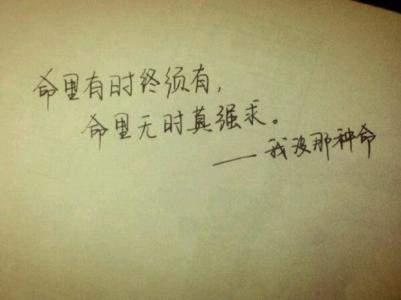 命里有时终须有，
命里无时莫强求。
——我没那种命